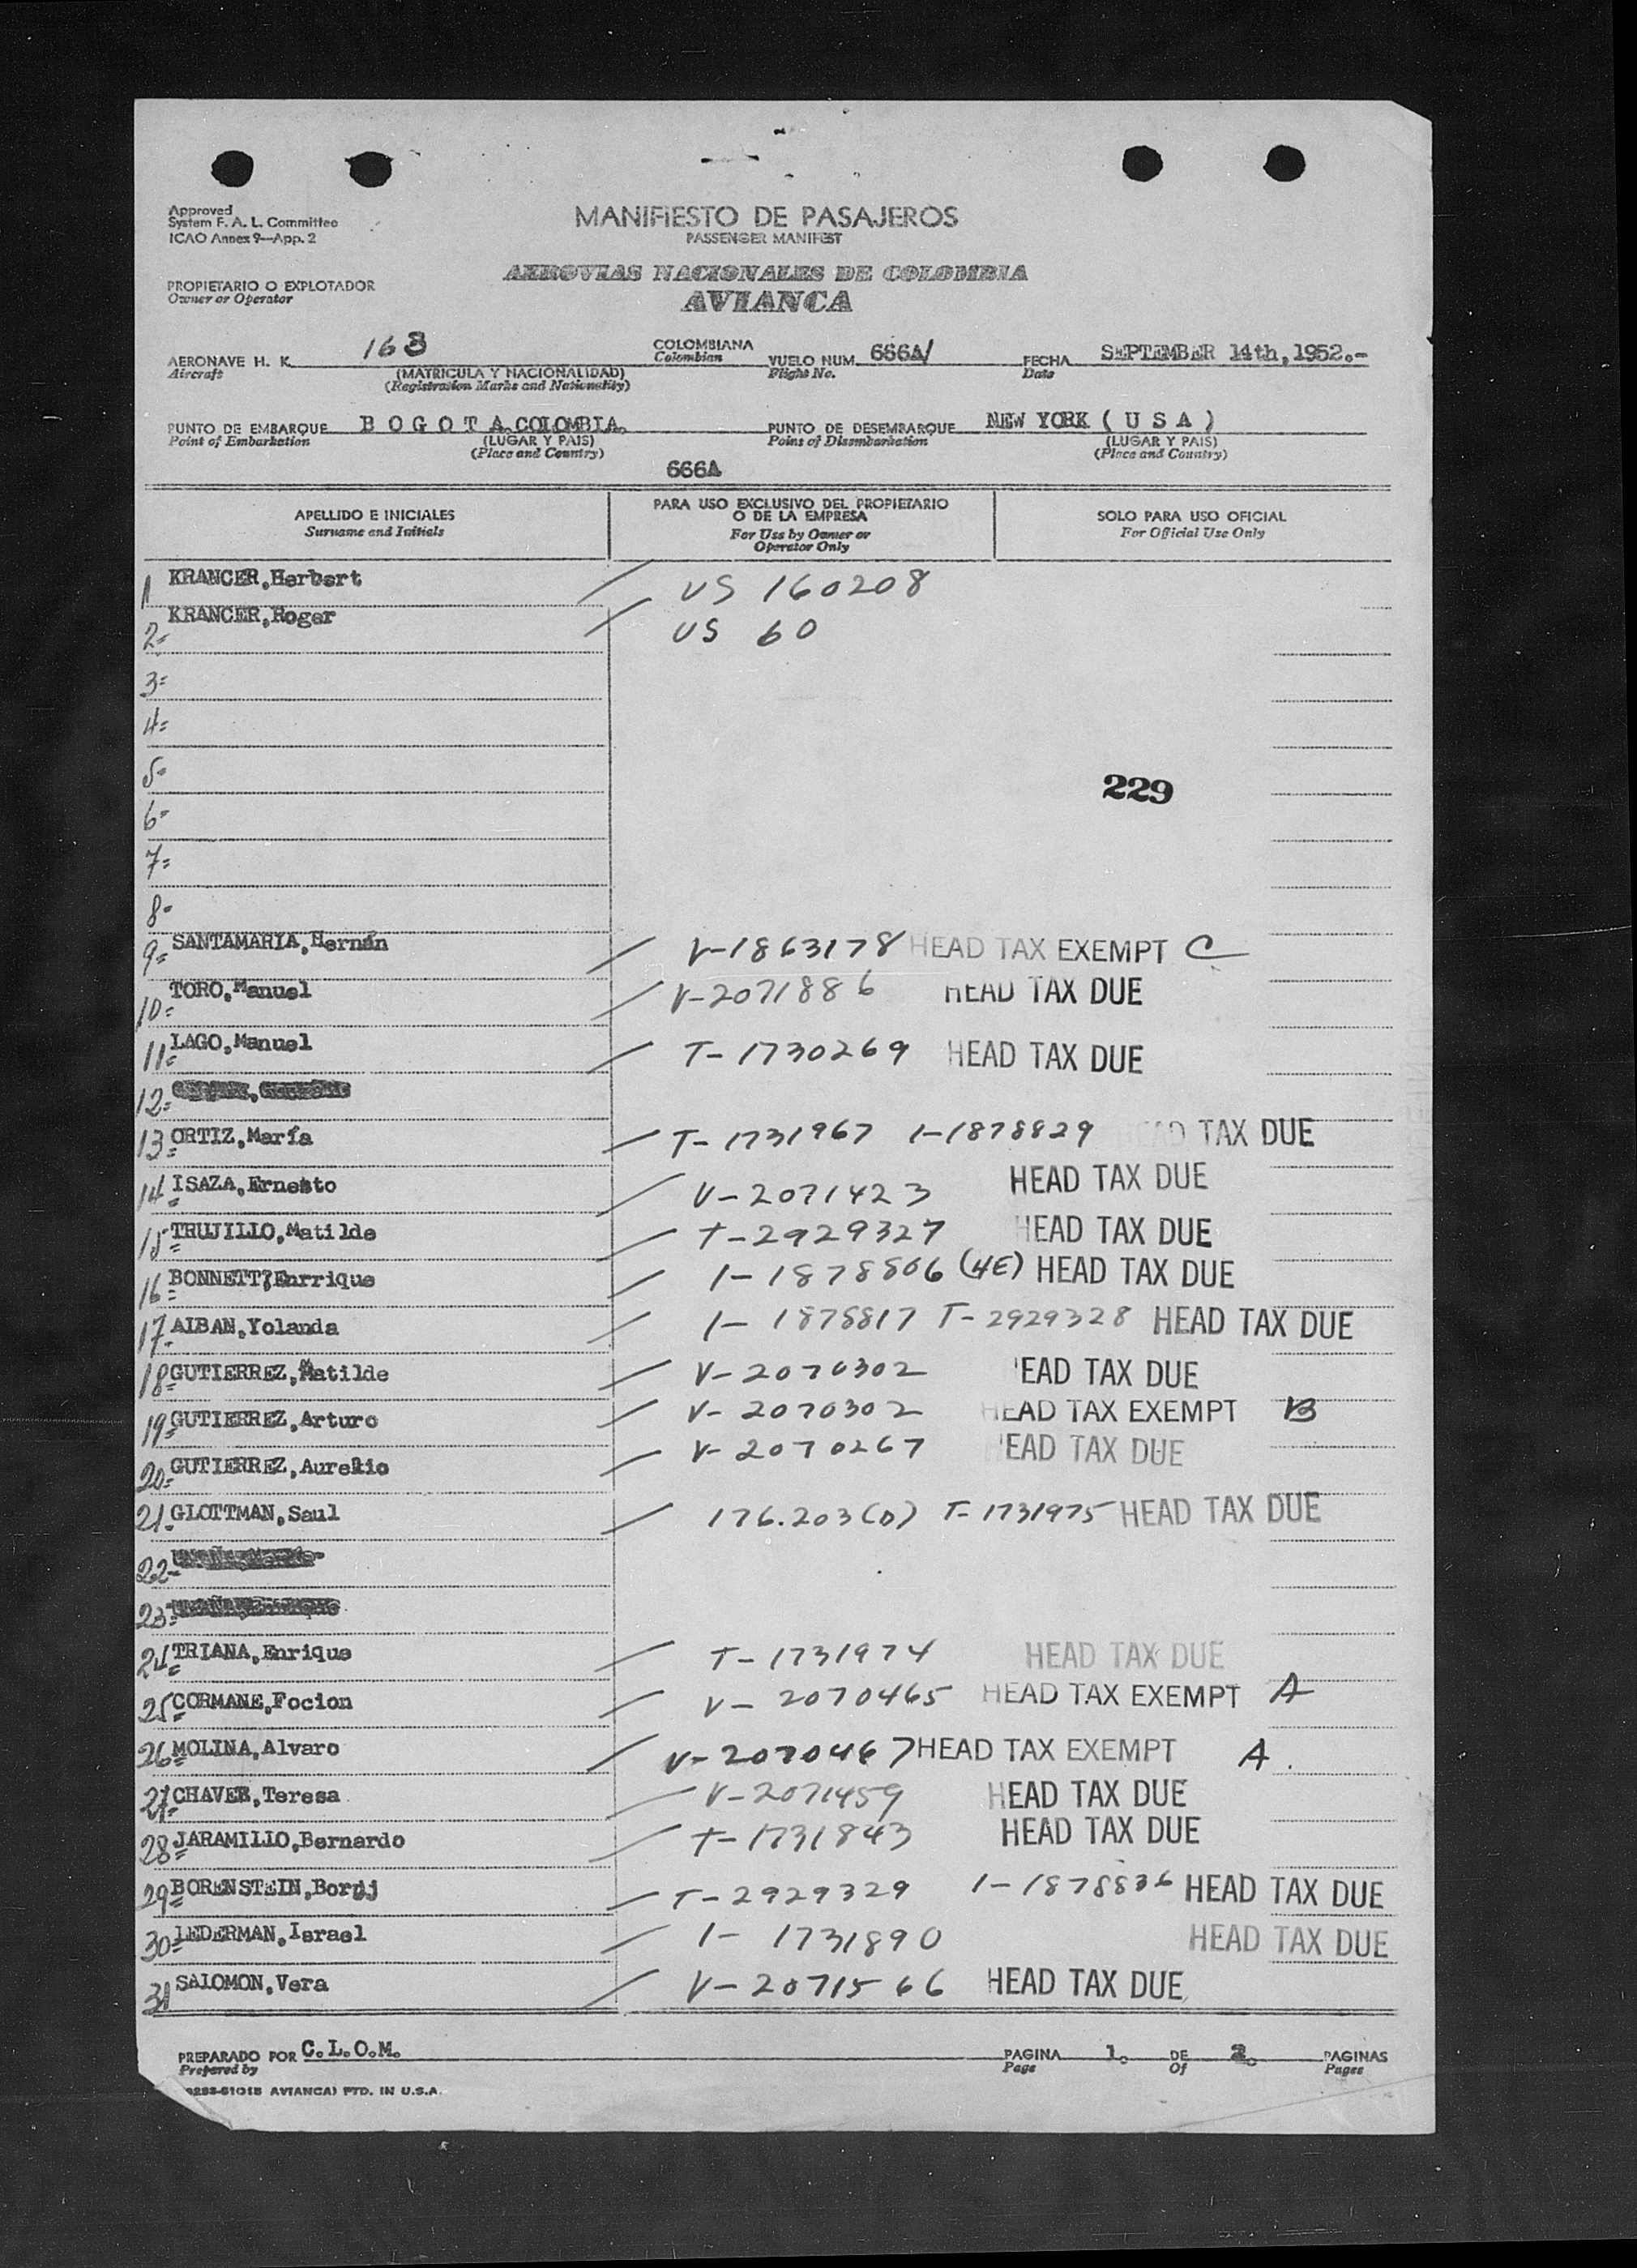 Approved
System F. A. L. Committee
ICAO Annex 9—App. 2
MANIFIESTO DE PASAJEROS
PASSENGER MANIFEST
PROPIETARIO O EXPLOTADOR
Owner or Operator
AEROVIAS NACIONALES DE COLOMBIA
AVIANCA
AERONAVE H. K. 163 COLOMBIANA VUELO NUM. 666A/ FECHA SEPTEMBER 14th, 1952.-
Aircraft (MATRICULA Y NACIONALIDAD) Colombian Flight No. Date
(Registration Marks and Nationality)
PUNTO DE EMBARQUE B O G O T A, COLOMBIA. PUNTO DE DESEMBARQUE NEW YORK ( U S A )
Point of Embarkation (LUGAR Y PAIS) Point of Disembarkation (LUGAR Y PAIS)
(Place and Country) (Place and Country)
666A
APELLIDO E INICIALES PARA USO EXCLUSIVO DEL PROPIETARIO O DE LA EMPRESA SOLO PARA USO OFICIAL
Surname and Initials For Use by Owner or Operator Only For Official Use Only
1 KRANCER, Herbert / US 160208
2- KRANCER, Roger / US 60
3=
4=
5=
229
6=
7=
8=
9= SANTAMARIA, Hernán / V-1863178 HEAD TAX EXEMPT C
10= TORO, Manuel / V-2071886 HEAD TAX DUE
11= LAGO, Manuel / T-1730269 HEAD TAX DUE
12=
13= ORTIZ, María / T-1731967 1-1878829 HEAD TAX DUE
14= ISAZA, Ernesto / V-2071423 HEAD TAX DUE
15= TRUJILLO, Matilde / T-2929327 HEAD TAX DUE
16= BONNETT, Enrrique / 1-1878806 (4E) HEAD TAX DUE
17= ALBAN, Yolanda / 1-1878817 T-2929328 HEAD TAX DUE
18= GUTIERREZ, Matilde / V-2070302 HEAD TAX DUE
19= GUTIERREZ, Arturo / V-2070302 HEAD TAX EXEMPT B
20= GUTIERREZ, Aurelio / V-2070267 HEAD TAX DUE
21. GLOTTMAN, Saul / 176.203(D) T-1731975 HEAD TAX DUE
22-
23=
24= TRIANA, Enrique / T-1731974 HEAD TAX DUE
25= CORMANE, Focion / V-2070465 HEAD TAX EXEMPT A
26= MOLINA, Alvaro / V-2070467 HEAD TAX EXEMPT A.
27= CHAVEZ, Teresa / V-2071459 HEAD TAX DUE
28= JARAMILLO, Bernardo / T-1731843 HEAD TAX DUE
29= BORENSTEIN, / T-2929329 1-1878836 HEAD TAX DUE
30= LEDERMAN, Israel / 1-1731890 HEAD TAX DUE
31 SALOMON, Vera / V-2071566 HEAD TAX DUE
PREPARADO POR C.L.O.M. PAGINA 1. DE 2. PAGINAS
Prepared by Page Of Pages
AVIANCA) PTD. IN U.S.A.